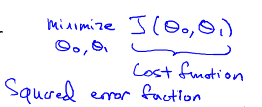 minimize J(θ₀,θ₁)
θ₀,θ₁
Cost function
Squared error function